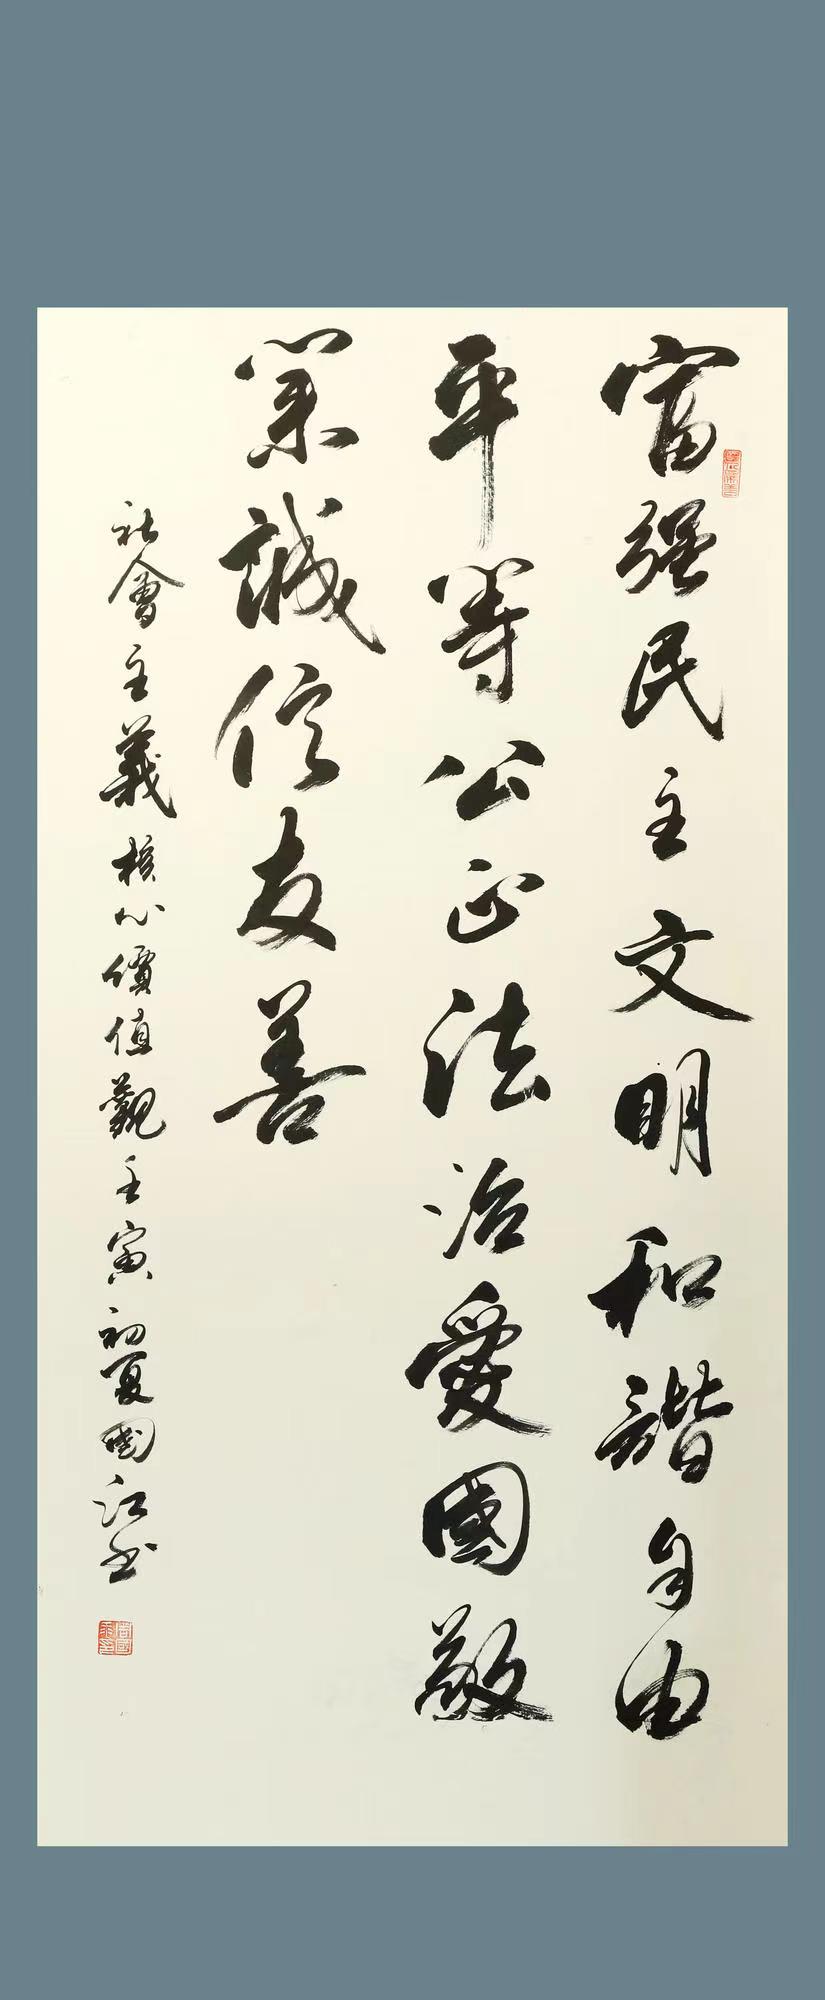 富强民主文明和諧自由
平等公正法治愛國敬
業誠信友善
社會主義核心價值觀壬寅初夏國江书